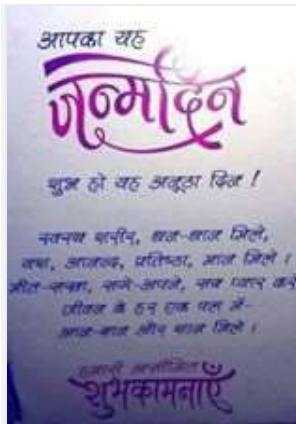 आपका यह
जन्मदिन
शुभ हो यह अनूठा दिन !
स्वस्थ शरीर, धन-धान मिले,
यश, आनन्द, प्रतिष्ठा, मान मिले ।
मीत-सखा, सगे-अपने, सब प्यार करें
जीवन के हर एक पल में-
आन-बान और शान मिले ।
हमारी असीमित
शुभकामनाएँ